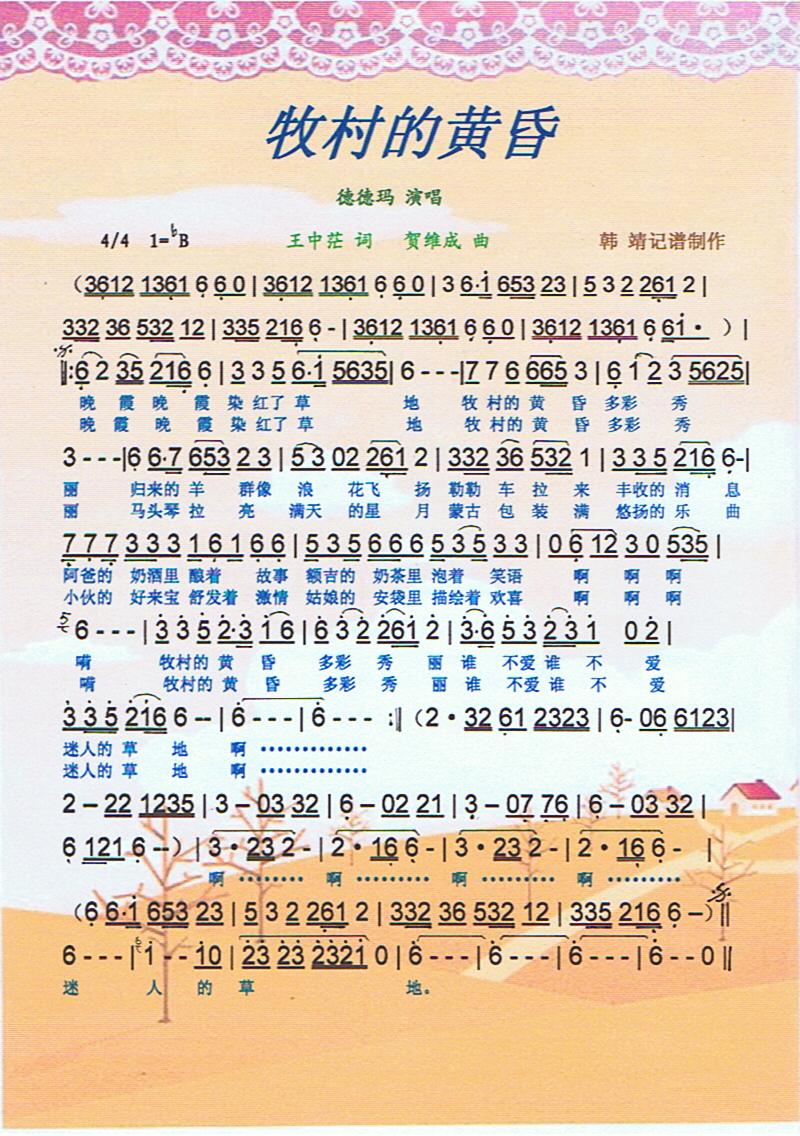 牧村的黄昏
德德玛 演唱
4/4 1=♭B 王中茫 词 贺维成 曲 韩 靖记谱制作
（3612 1361 6 6 0 | 3612 1361 6 6 0 | 3 6·1 653 23 | 5 3 2 261 2 |
332 36 532 12 | 335 216 6 - | 3612 1361 6 6 0 | 3612 1361 6 61 · ）|
‖: 6 2 35 216 6 | 3 3 5 6·1 5635 | 6 - - - | 7 7 6 665 3 | 6 1 2 3 5625 |
晚 霞 晚 霞 染 红了 草 地 牧 村的 黄 昏 多彩 秀
晚 霞 晚 霞 染 红了 草 地 牧 村的 黄 昏 多彩 秀
3 - - - | 6 6·7 653 2 3 | 5 3 02 261 2 | 332 36 532 1 | 3 3 5 216 6- |
丽 归来的 羊 群像 浪 花飞 扬 勒勒 车 拉 来 丰收的 消 息
丽 马头琴 拉 亮 满天 的星 月 蒙古 包 装 满 悠扬的 乐 曲
7 7 7 3 3 3 1 6 1 6 6 | 5 3 5 6 6 6 5 3 5 3 3 | 0 6 12 3 0 535 |
阿爸的 奶酒里 酿着 故事 额吉的 奶茶里 泡着 笑语 啊 啊 啊
小伙的 好来宝 舒发着 激情 姑娘的 安袋里 描绘着 欢喜 啊 啊 啊
5 6 - - - | 3 3 5 2·3 1 6 | 6 3 2 261 2 | 3·6 5 3 2 3 1 0 2 |
嗬 牧村的 黄 昏 多彩 秀 丽 谁 不爱 谁 不 爱
嗬 牧村的 黄 昏 多彩 秀 丽 谁 不爱 谁 不 爱
3 3 5 216 6 -- | 6 - - - | 6 - - - :‖ （2 · 32 61 2323 | 6- 06 6123 |
迷人的 草 地 啊 ··············
迷人的 草 地 啊 ··············
2 – 22 1235 | 3 – 03 32 | 6 – 02 21 | 3 – 07 76 | 6 – 03 32 |
6 121 6 --）| 3 · 23 2 - | 2 · 16 6 - | 3 · 23 2 - | 2 · 16 6 - |
啊 ········· 啊 ········· 啊 ········· 啊 ·········
（6 6·1 653 23 | 5 3 2 261 2 | 332 36 532 12 | 335 216 6 –）‖
6 - - - | 1 - - 10 | 23 23 2321 0 | 6 - - - | 6 - - - | 6 - - - | 6 - - 0 ‖
迷 人 的 草 地。